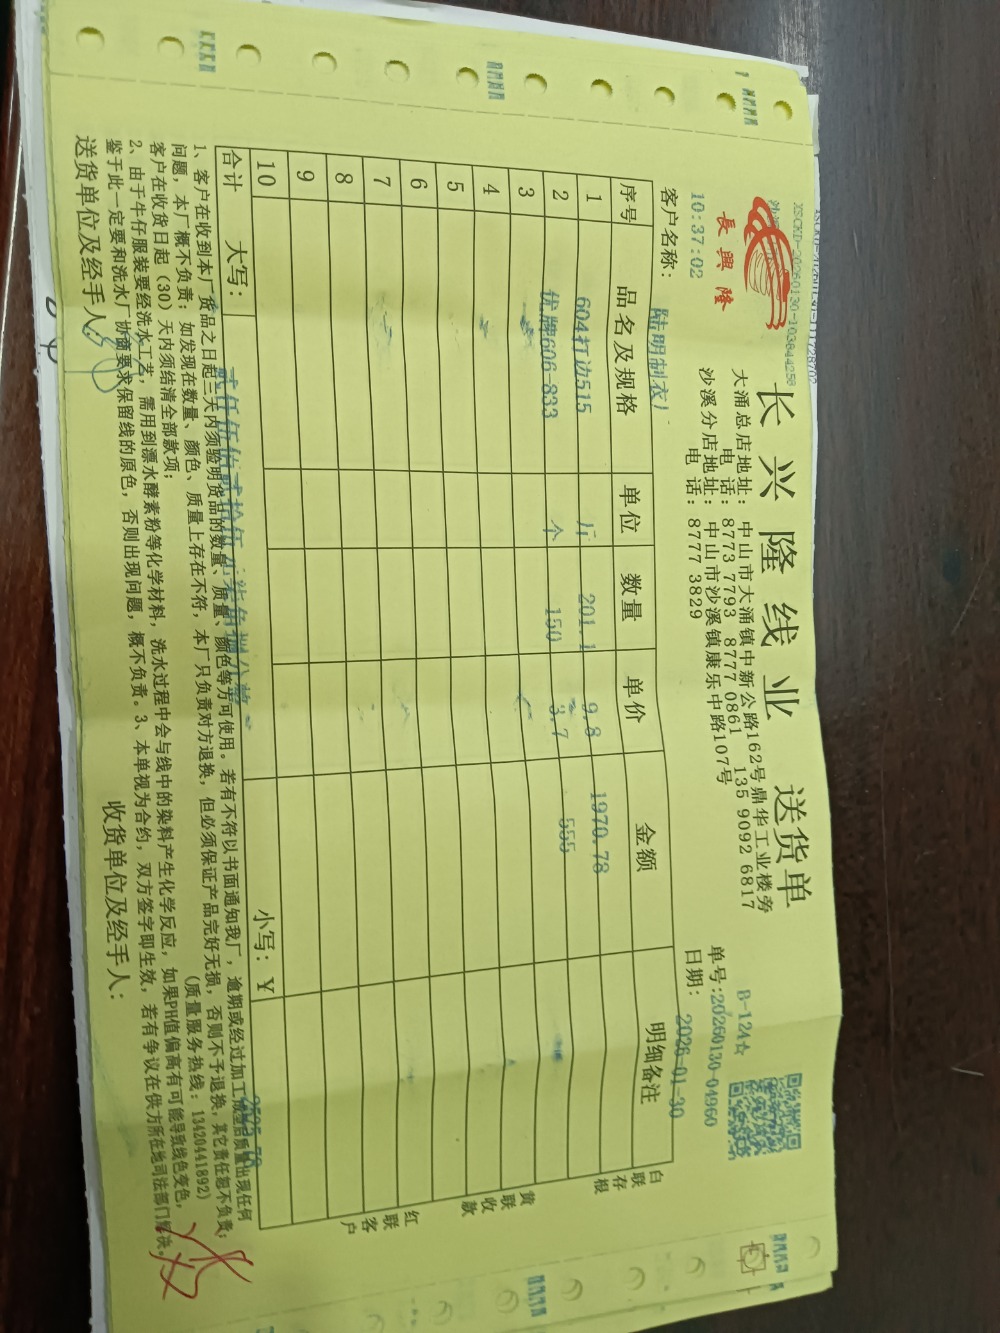 XSCKD-20260130-103844258
長興隆
10:37:02
长兴隆线业 送货单
大涌总店地址: 中山市大涌镇中新公路162号鼎华工业楼旁
电 话: 8773 7793 8777 0861 135 9092 6817
沙溪分店地址: 中山市沙溪镇康乐中路107号
电 话: 8777 3829
B-124☆
单号:20260130-04960
日期: 2026-01-30
客户名称: 陆明制衣厂
序号 品名及规格 单位 数量 单价 金额 明细备注
1 604打边515 斤 201.1 9.8 1970.78
2 优牌606-833 个 150 3.7 555
3
4
5
6
7
8
9
10
合计 大写: 贰仟伍佰贰拾伍元柒角捌分整 小写: ¥ 2525.78
白联存根
黄联收款
红联客户
1、客户在收到本厂货品之日起三天内须验明货品的数量、质量、颜色等方可使用。若有不符以书面通知我厂, 逾期或经过加工成型后质量出现任何
问题, 本厂概不负责; 如发现在数量、颜色、质量上存在不符, 本厂只负责对方退换, 但必须保证产品完好无损, 否则不予退换, 其它责任恕不负责;
客户在收货日起 (30) 天内须结清全部款项; (质量服务热线: 13420441892)
2、由于牛仔服装要经洗水工艺, 需用到漂水酵素粉等化学材料, 洗水过程中会与线中的染料产生化学反应, 如果PH值偏高有可能导致线色变色,
鉴于此一定要和洗水厂协商要求保留线的原色, 否则出现问题, 概不负责。3、本单视为合约, 双方签字即生效, 若有争议在供方所在地司法部门解决。
送货单位及经手人: 收货单位及经手人: